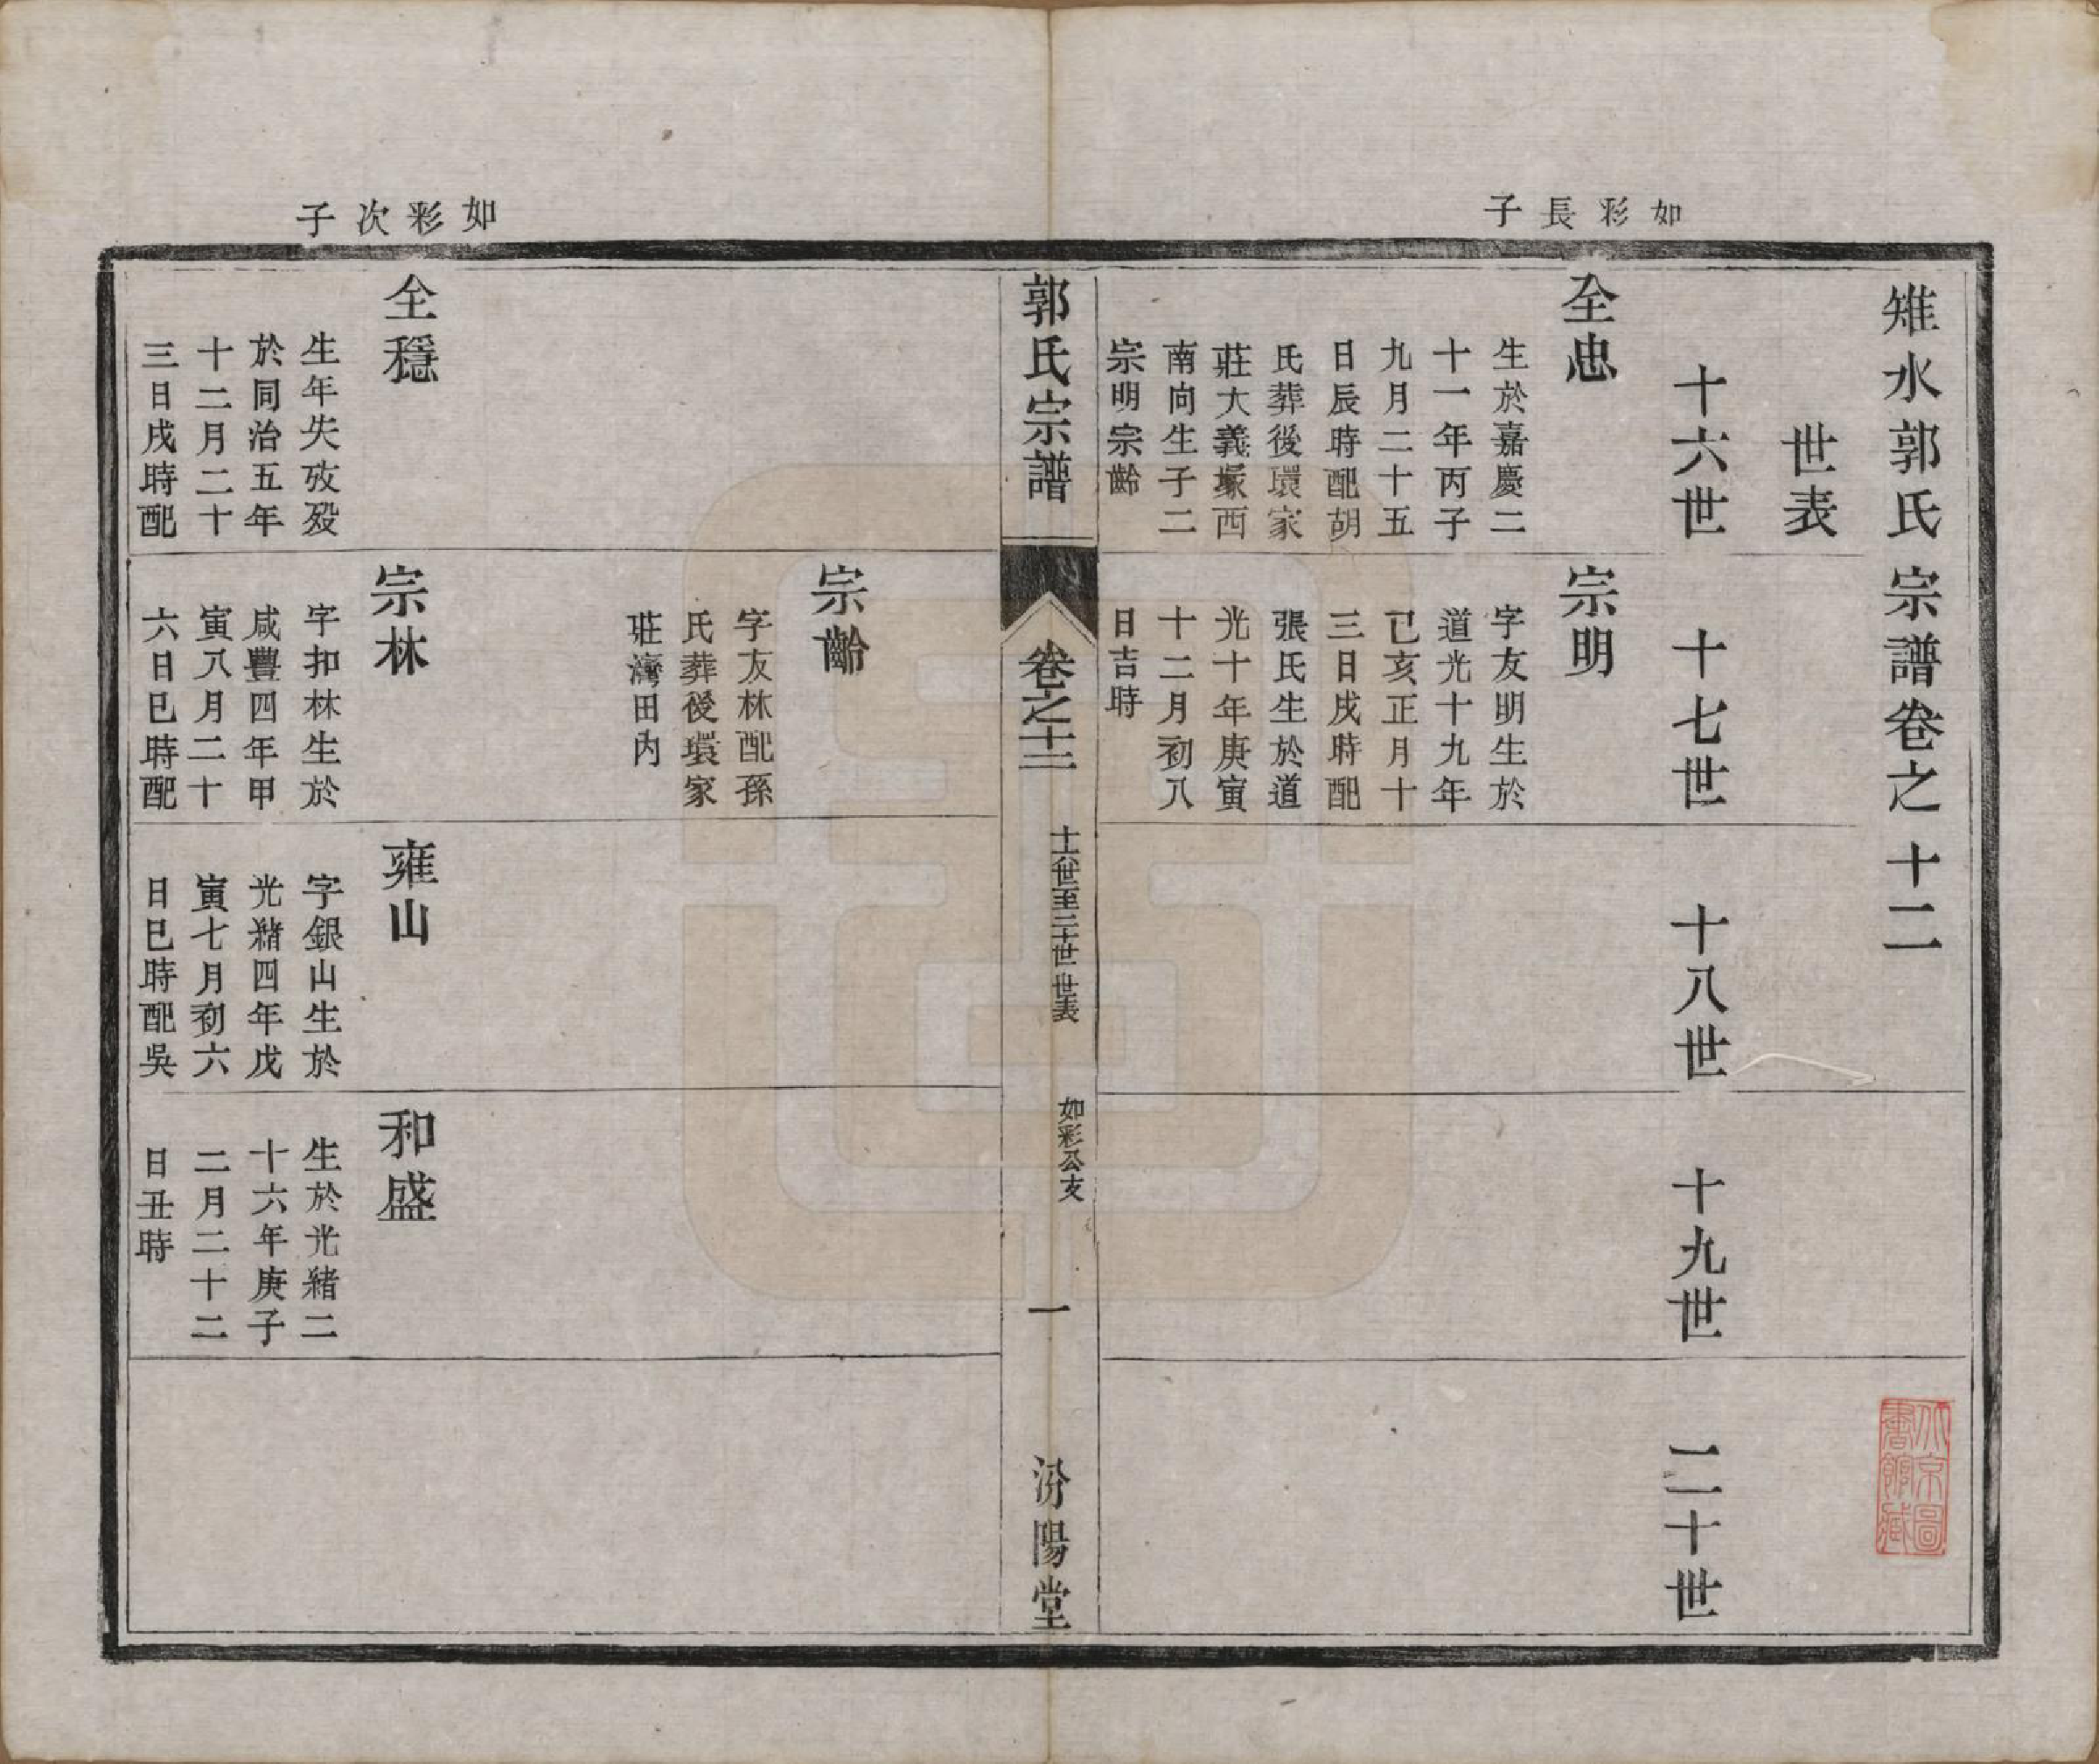 雉水郭氏宗譜卷之十二
世表
十六世
十七世
十八世
十九世
二十世
如彩長子
全忠
生於嘉慶二
十一年丙子
九月二十五
日辰時配胡
氏葬後環家
莊大義塚西
南向生子二
宗明宗齡
宗明
字友明生於
道光十九年
己亥正月十
三日戌時配
張氏生於道
光十年庚寅
十二月初八
日吉時
郭氏宗譜
卷之十二
十六世至二十世世表
如彩公支
一
汾陽堂
宗齡
字友林配孫
氏葬後環家
莊灣田內
如彩次子
全穩
生年失攷歿
於同治五年
十二月二十
三日戌時配
宗林
字扣林生於
咸豐四年甲
寅八月二十
六日巳時配
雍山
字銀山生於
光緒四年戊
寅七月初六
日巳時配吳
和盛
生於光緒二
十六年庚子
二月二十二
日丑時
北京圖
書館藏